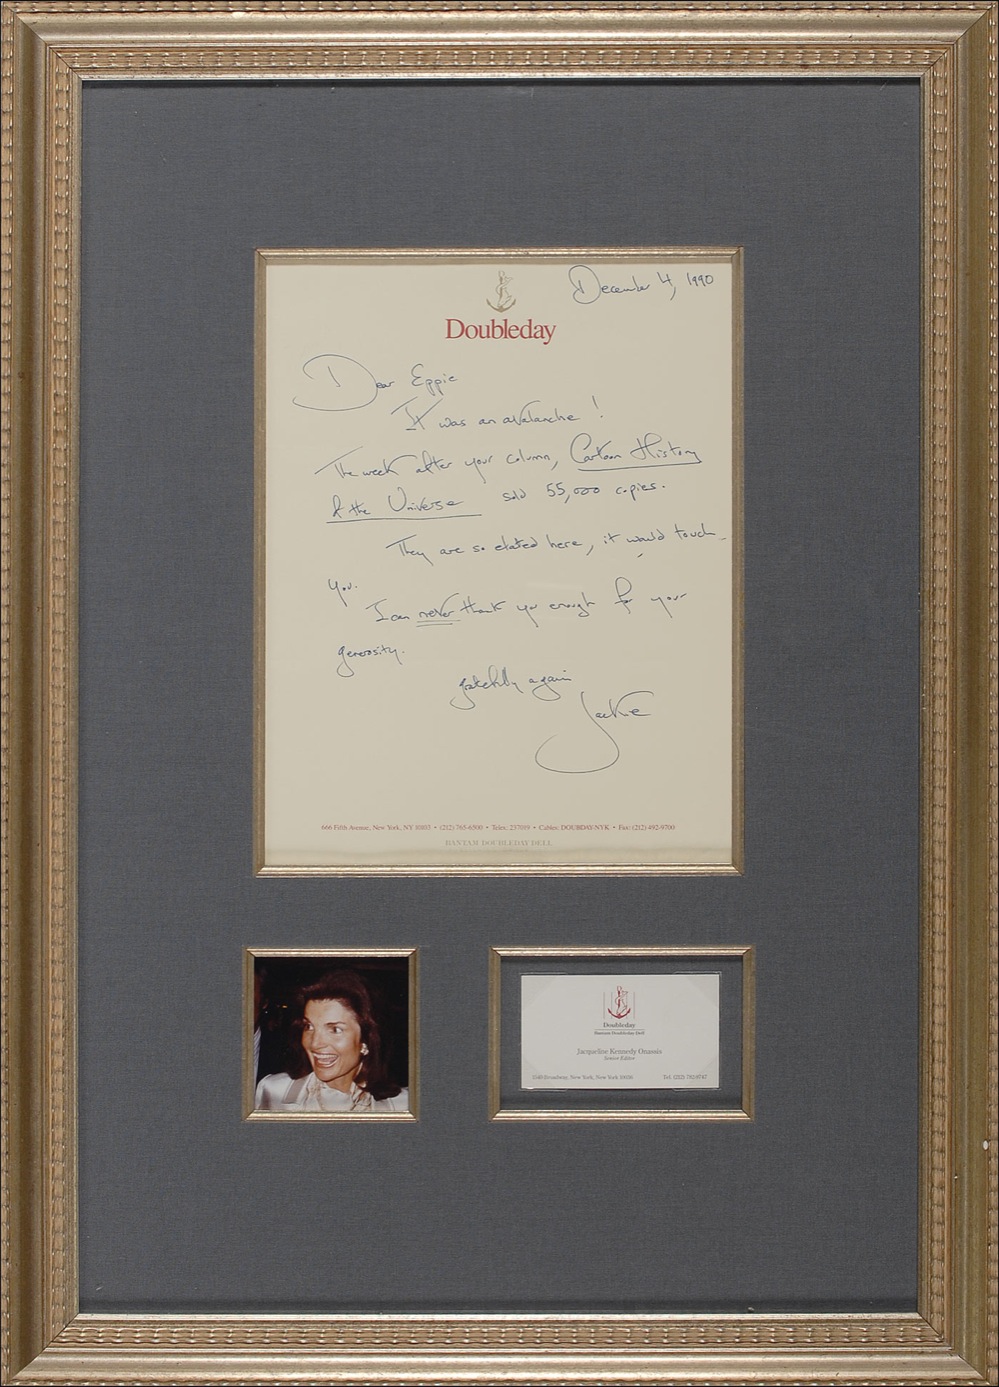 December 4, 1990
Doubleday
Dear Eppie
It was an avalanche!
The week after your column, Cartoon History
of the Universe sold 55,000 copies.
They are so elated here, it would touch
you.
I can never thank you enough for your
generosity.
gratefully again
Jackie
666 Fifth Avenue, New York, NY 10103 • (212) 765-6500 • Telex: 237019 • Cables: DOUBDAY-NYK • Fax: (212) 492-9700
BANTAM DOUBLEDAY DELL
Doubleday
Bantam Doubleday Dell
Jacqueline Kennedy Onassis
Senior Editor
1540 Broadway, New York, New York 10036 Tel. (212)